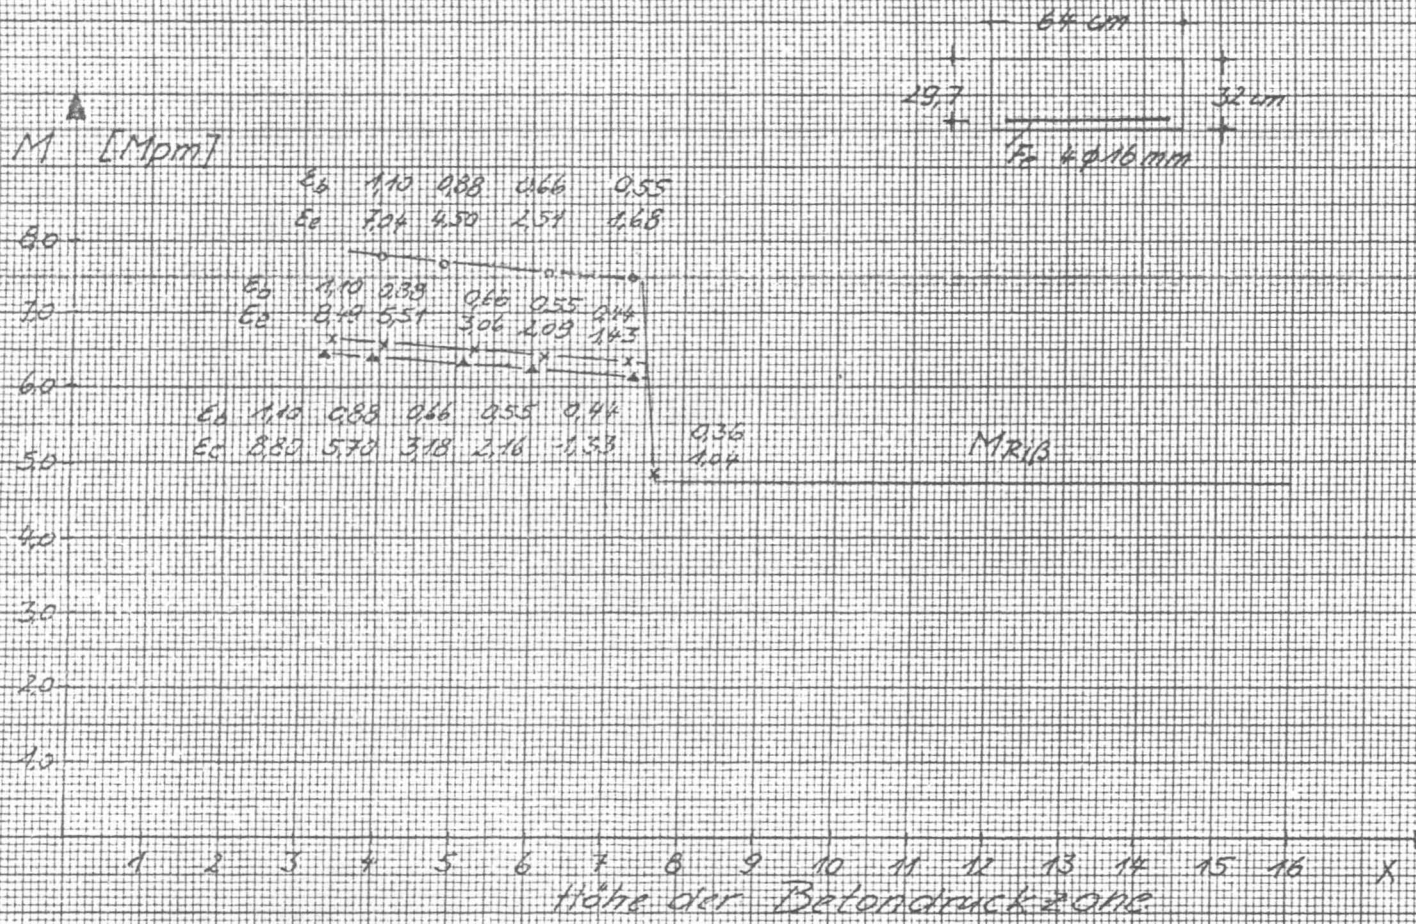 64 cm
29,7
32 cm
Fe 4 ϕ 16 mm
M [Mpm]
εb 1,10 0,88 0,66 0,55
εe 7,04 4,50 2,51 1,68
8,0
εb 1,10 0,88 0,66 0,55 0,44
εe 8,49 5,51 3,06 2,09 1,43
7,0
6,0
εb 1,10 0,88 0,66 0,55 0,44
εe 8,80 5,70 3,18 2,16 1,33
0,36
1,04
MRiß
5,0
4,0
3,0
2,0
1,0
1 2 3 4 5 6 7 8 9 10 11 12 13 14 15 16 X
Höhe der Betondruckzone